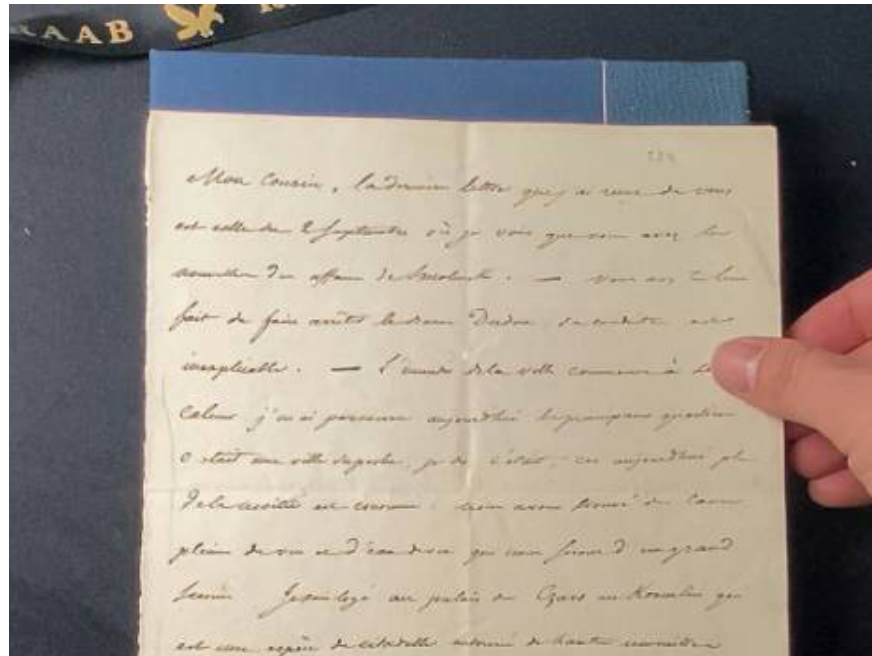 RAAB
Mon Cousin, la dernière lettre que j'ai reçue de vous
est celle du 2 Septembre où je vois que vous avez les
nouvelles des affaires de Smolensk. — Vous avez très bien
fait de faire arrêter le sieur Dudon, sa conduite est
inexplicable. — L'incendie de la ville commence à se
calmer j'en ai parcouru aujourd'hui les principaux quartiers
c'était une ville superbe, je dis c'était, car aujourd'hui plus
de la moitié est consumé. nous avons trouvé des Caves
pleines de vin et d'eau de vie qui nous seront d'un grand
Secours. Je suis logé au palais des Czars au Kremlin qui
est une espèce de citadelle entourée de hautes murailles